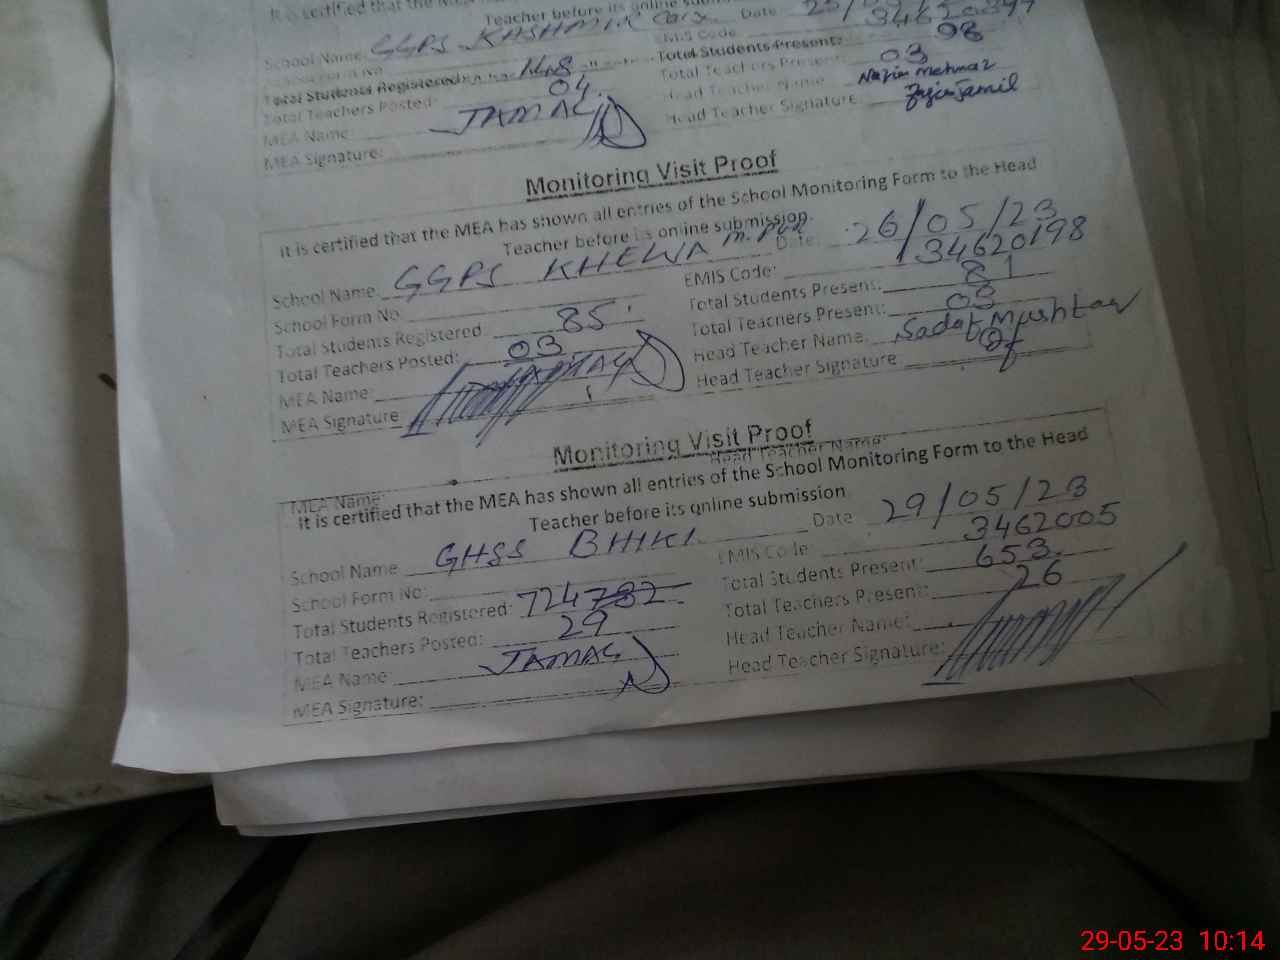 It is certified that the MEA
Teacher before its online
School Name: GGPS KHSHMIR Date:
EMIS Code
Total Students Registered Total Students Present: 98
Total Teachers Posted: 04 Total Teachers Present: 03
MEA Name JAMAL Head Teacher Name
MEA Signature: Head Teacher Signature
Monitoring Visit Proof
It is certified that the MEA has shown all entries of the School Monitoring Form to the Head
Teacher before its online submission.
School Name GGPS KHEWA Date: 26/05/23
School Form No. EMIS Code: 34620198
Total Students Registered 85 Total Students Present: 81
Total Teachers Posted: 03 Total Teachers Present: 03
MEA Name: JAMAL Head Teacher Name: Sadaf Mushtaq
MEA Signature Head Teacher Signature
Monitoring Visit Proof
Head Teacher Name:
MEA Name:
It is certified that the MEA has shown all entries of the School Monitoring Form to the Head
Teacher before its online submission
School Name GHSS BHIKI Date 29/05/23
School Form No: EMIS Code: 3462005
Total Students Registered: 724 732 Total Students Present: 653
Total Teachers Posted: 29 Total Teachers Present: 26
MEA Name JAMAL Head Teacher Name:
MEA Signature: Head Teacher Signature:
29-05-23 10:14